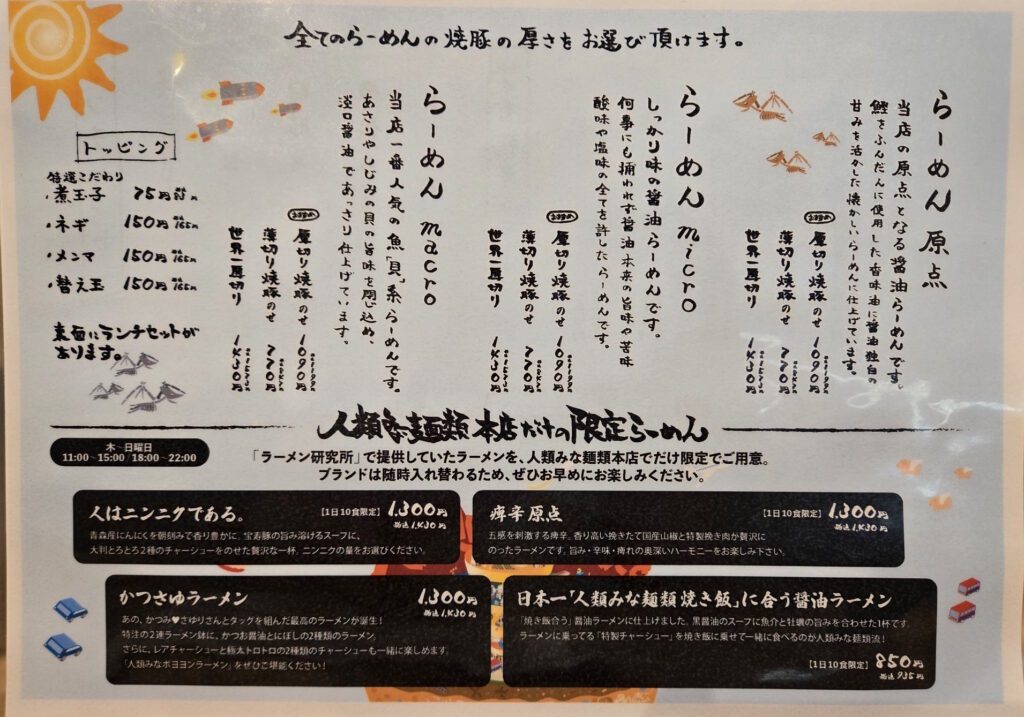 全てのらーめんの焼豚の厚さをお選び頂けます。
らーめん 原点
当店の原点となる醤油らーめんです。
鰹をふんだんに使用した香味油に醤油独自の
甘みを活かした懐かしいらーめんに仕上げています。
おすすめ
厚切り焼豚のせ 1090円
薄切り焼豚のせ 770円
世界一厚切り 1430円
らーめん micro
しっかり味の醤油らーめんです。
何事にも捕われず醤油本来の旨味や苦味
酸味や塩味の全てを許したらーめんです。
おすすめ
厚切り焼豚のせ 1090円
薄切り焼豚のせ 770円
世界一厚切り 1430円
らーめん macro
当店一番人気の魚「貝」系らーめんです。
あさりやしじみの貝の旨味を閉じ込め、
淡口醤油であっさり仕上げています。
おすすめ
厚切り焼豚のせ 1090円
薄切り焼豚のせ 770円
世界一厚切り 1430円
トッピング
特選こだわり
・煮玉子 75円
・ネギ 150円 税込165円
・メンマ 150円 税込165円
・替え玉 150円 税込165円
裏面にランチセットが
あります。
人類みな麺類本店だけの限定らーめん
木~日曜日
11:00~15:00/18:00~22:00
「ラーメン研究所」で提供していたラーメンを、人類みな麺類本店でだけ限定でご用意。
ブランドは随時入れ替わるため、ぜひお早めにお楽しみください。
人はニンニクである。 【1日10食限定】 1,300円
税込1,430円
青森産にんにくを朝刻みで香り豊かに。宝寿豚の旨み溶けるスープに、
大判とろとろ2種のチャーシューをのせた贅沢な一杯。ニンニクの量をお選びください。
痺辛原点 【1日10食限定】 1,300円
税込1,430円
五感を刺激する痺辛。香り高い挽きたて国産山椒と特製挽き肉が贅沢に
のったラーメンです。旨み・辛味・痺れの奥深いハーモニーをお楽しみ下さい。
かつさゆラーメン 1,300円
税込1,430円
あの、かつみ♥さゆりさんとタッグを組んだ最高のラーメンが誕生!
特注の2連ラーメン鉢に、かつお醤油とにぼしの2種類のラーメン。
さらに、レアチャーシューと極太トロトロの2種類のチャーシューも一緒に楽しめます。
「人類みなボヨヨンラーメン」をぜひご堪能ください!
日本一「人類みな麺類 焼き飯」に合う醤油ラーメン
「焼き飯合う」醤油ラーメンに仕上げました。黒醤油のスープに魚介と牡蠣の旨みを合わせた1杯です。
ラーメンに乗ってる「特製チャーシュー」を焼き飯に乗せて一緒に食べるのが人類みな麺類流!
【1日10食限定】 850円
税込 935円